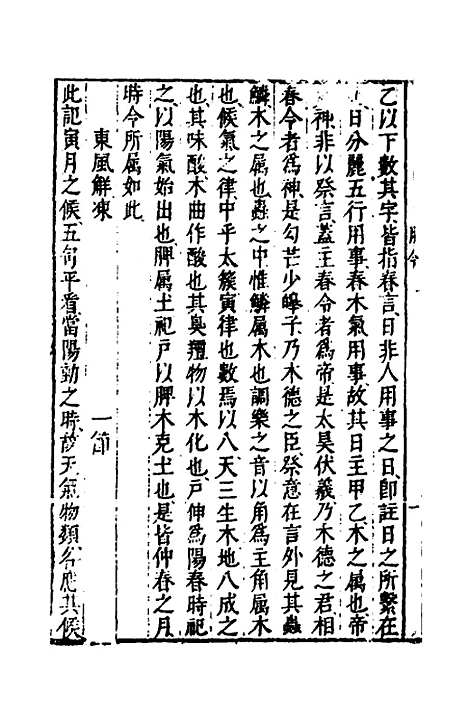 乙以下數其字皆指春言日非人用事之日即註日之所繫在
日分麗五行用事春木氣用事故其日主甲乙木之属也帝
神非以祭言蓋王春令者為帝是太昊伏羲乃木德之君相
春令者為神是勾芒少皞子乃木德之臣祭意在言外見其蟲
鱗木之属也蟲之中惟鱗属木也調樂之音以角為主角属木
也候氣之律中乎太簇寅律也數焉以八天三生木地八成之
也其味酸木曲作酸也其臭羶物以木化也戸伸為陽春時祀
之以陽氣始出也脾属土祀戸以脾木克土也是皆仲春之月
時令所属如此
東風解凍 一節
此記寅月之候五句平看當陽動之時故天氣物類各應其候
月令